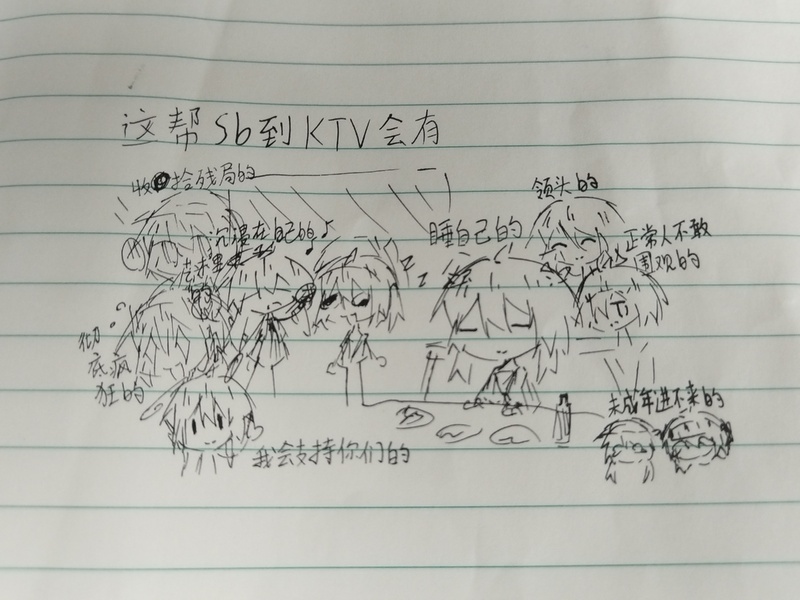 这帮Sb到KTV会有
收拾残局的
领头的
沉浸在自己的
世界里
的
睡自己的
正常人不敢
围观的
z
z
彻
底疯
狂的
未成年进不来的
我会支持你们的